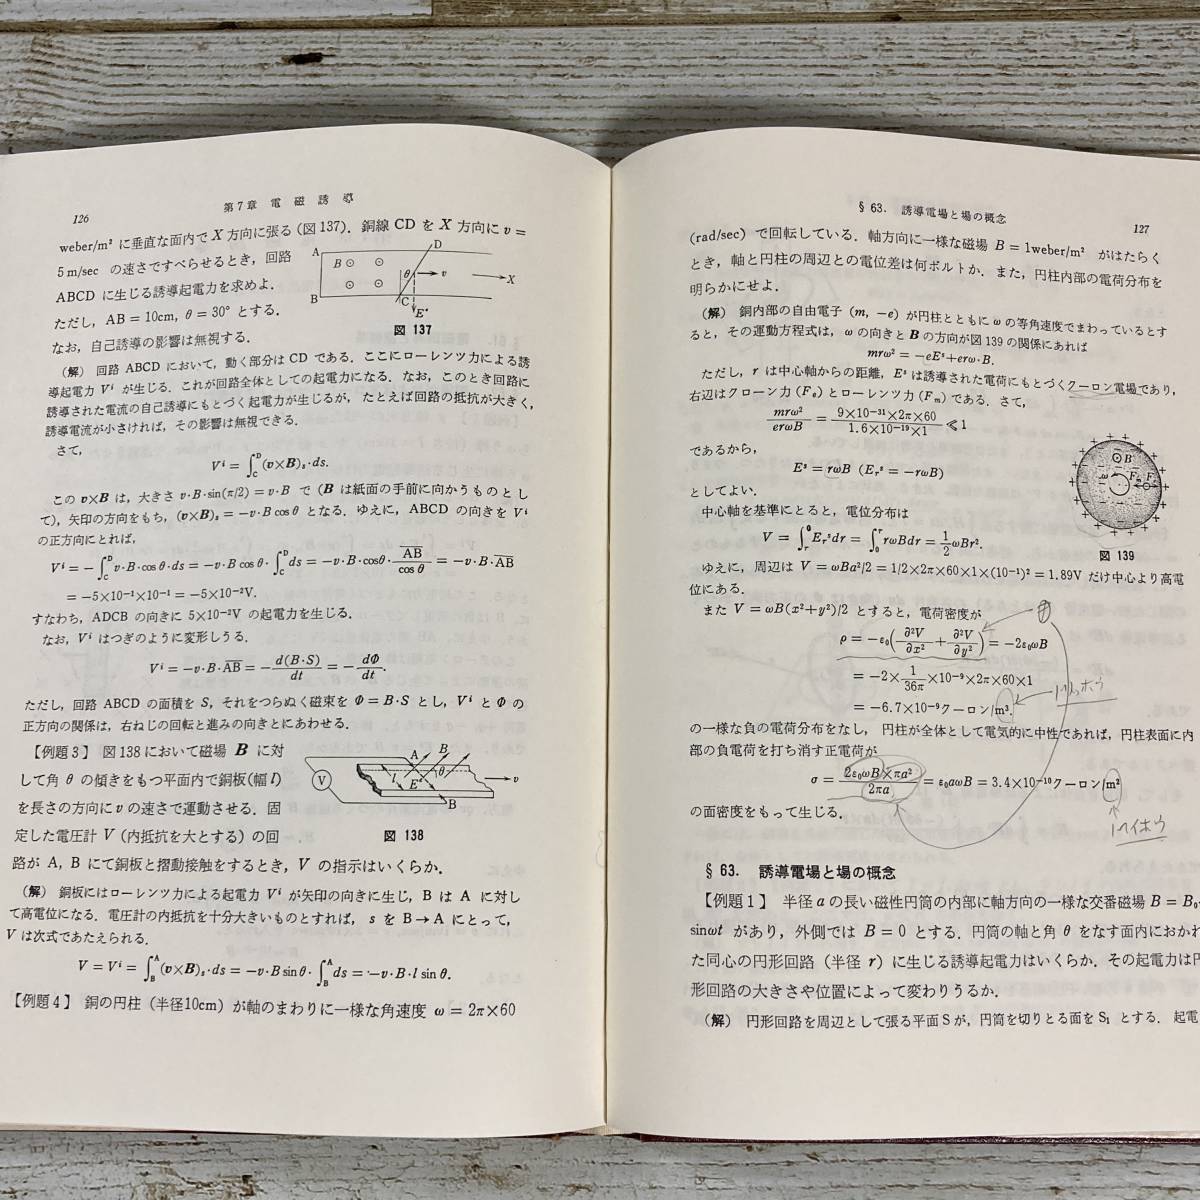 126
第7章 電磁誘導
weber/m² に垂直な面内で X 方向に張る (図 137). 銅線 CD を X 方向に v =
5 m/sec の速さですべらせるとき, 回路
ABCD に生じる誘導起電力を求めよ.
ただし, AB = 10cm, θ = 30° とする.
なお, 自己誘導の影響は無視する.
A
D
B ⊙ ⊙
θ
v
X
⊙ ⊙
B
C
Eˢ
図 137
(解) 回路 ABCD において, 動く部分は CD である. ここにローレンツ力による誘
導起電力 Vⁱ が生じる. これが回路全体としての起電力になる. なお, このとき回路に
誘導された電流の自己誘導にもとづく起電力が生じるが, たとえば回路の抵抗が大きく,
誘導電流が小さければ, その影響は無視できる.
さて,
Vⁱ = ∫_C^D (v×B)ₛ·ds.
この v×B は, 大きさ v·B·sin(π/2) = v·B で (B は紙面の手前に向かうものとし
て), 矢印の方向をもち, (v×B)ₛ = −v·B cos θ となる. ゆえに, ABCD の向きを Vⁱ
の正方向にとれば,
Vⁱ = −∫_C^D v·B·cos θ·ds = −v·B cos θ·∫_C^D ds = −v·B·cosθ·AB/cos θ = −v·B·AB
= −5×10⁻¹×10⁻¹ = −5×10⁻²V.
すなわち, ADCB の向きに 5×10⁻²V の起電力を生じる.
なお, Vⁱ はつぎのように変形しうる.
Vⁱ = −v·B·AB = −d(B·S)/dt = −dΦ/dt.
ただし, 回路 ABCD の面積を S, それをつらぬく磁束を Φ = B·S とし, Vⁱ と Φ の
正方向の関係は, 右ねじの回転と進みの向きとにあわせる.
【例題 3】 図 138 において磁場 B に対
して角 θ の傾きをもつ平面内で銅板 (幅 l)
を長さの方向に v の速さで運動させる. 固
定した電圧計 V (内抵抗を大とする) の回
路が A, B にて銅板と摺動接触をするとき, V の指示はいくらか.
V
A
B
l
Eˢ
θ
v
B
図 138
(解) 銅板にはローレンツ力による起電力 Vⁱ が矢印の向きに生じ, B は A に対し
て高電位になる. 電圧計の内抵抗を十分大きいものとすれば, s を B→A にとって,
V は次式であたえられる.
V = Vⁱ = ∫_B^A (v×B)ₛ·ds = −v·B sin θ·∫_B^A ds = −v·B·l sin θ.
【例題 4】 銅の円柱 (半径10cm) が軸のまわりに一様な角速度 ω = 2π×60
§ 63. 誘導電場と場の概念
127
(rad/sec) で回転している. 軸方向に一様な磁場 B = 1weber/m² がはたらく
とき, 軸と円柱の周辺との電位差は何ボルトか. また, 円柱内部の電荷分布を
明らかにせよ.
(解) 銅内部の自由電子 (m, −e) が円柱とともに ω の等角速度でまわっているとす
ると, その運動方程式は, ω の向きと B の方向が図 139 の関係にあれば
mrω² = −eEˢ+erω·B.
ただし, r は中心軸からの距離, Eˢ は誘導された電荷にもとづくクーロン電場であり,
右辺はクローン力 (Fₑ) とローレンツ力 (Fₘ) である. さて,
mrω²/erωB = 9×10⁻³¹×2π×60/1.6×10⁻¹⁹×1 ≪ 1
であるから,
Eˢ = rωB (Eᵣˢ = −rωB)
としてよい.
中心軸を基準にとると, 電位分布は
V = ∫_r^0 Eᵣˢdr = ∫_0^r rωBdr = 1/2 ωBr².
⊙B
ω
図 139
ゆえに, 周辺は V = ωBa²/2 = 1/2×2π×60×1×(10⁻¹)² = 1.89V だけ中心より高電
位にある.
また V = ωB(x²+y²)/2 とすると, 電荷密度が
ρ = −ε₀(∂²V/∂x² + ∂²V/∂y²) = −2ε₀ωB
= −2×1/36π×10⁻⁹×2π×60×1
= −6.7×10⁻⁹クーロン/m³.
の一様な負の電荷分布をなし, 円柱が全体として電気的に中性であれば, 円柱表面に内
部の負電荷を打ち消す正電荷が
σ = 2ε₀ωB×πa²/2πa = ε₀aωB = 3.4×10⁻¹⁰クーロン/m²
の面密度をもって生じる.
§ 63. 誘導電場と場の概念
【例題 1】 半径 a の長い磁性円筒の内部に軸方向の一様な交番磁場 B = B₀·
sinωt があり, 外側では B = 0 とする. 円筒の軸と角 θ をなす面内におかれ
た同心の円形回路 (半径 r) に生じる誘導起電力はいくらか. その起電力は円
形回路の大きさや位置によって変わりうるか.
(解) 円形回路を周辺として張る平面 S が, 円筒を切りとる面を S₁ とする. 起電